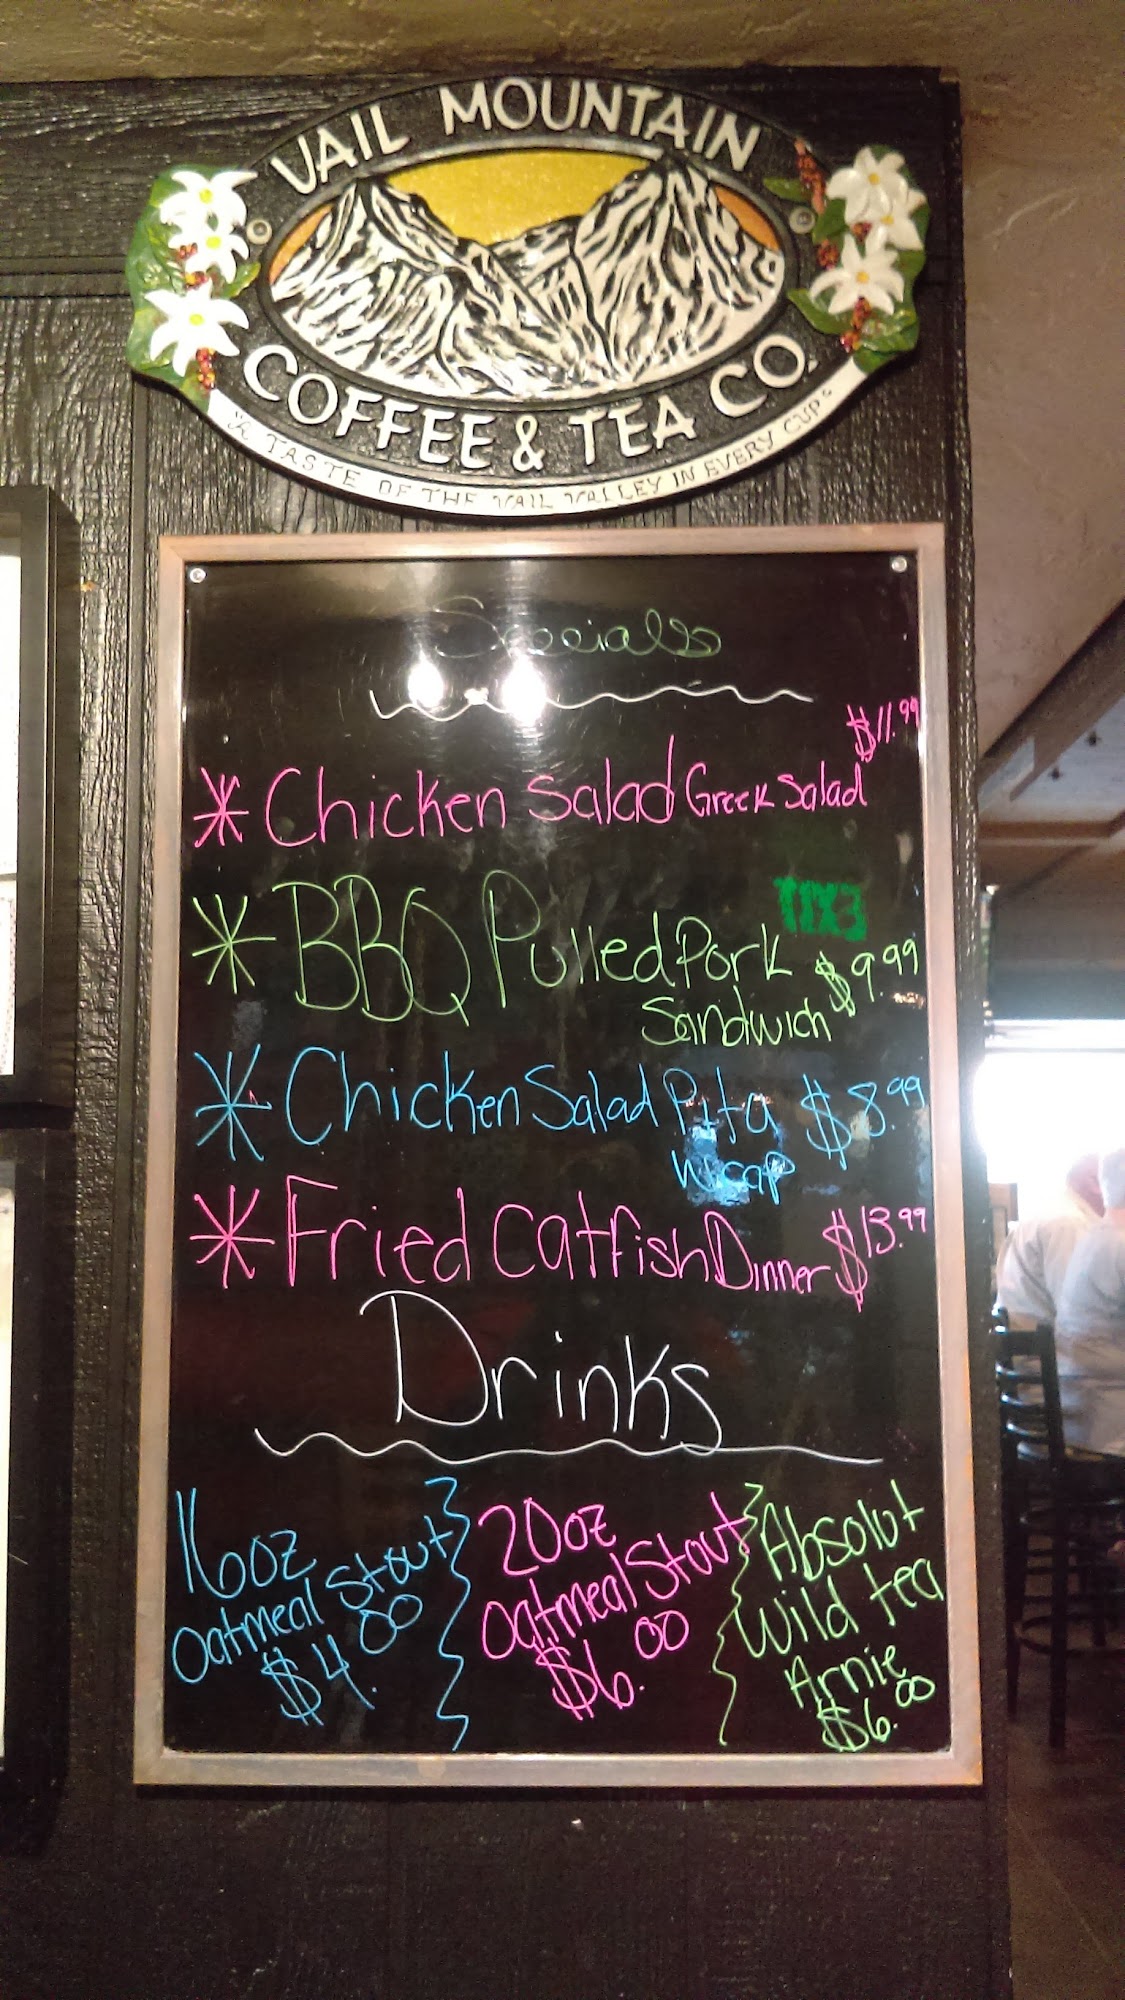 VAIL MOUNTAIN
COFFEE & TEA CO.
"A TASTE OF THE VAIL VALLEY IN EVERY CUP"
Specials
$11.99
* Chicken Salad Greek Salad
* BBQ Pulled Pork $9.99
Sandwich
* Chicken Salad Pita $8.99
Wrap
* Fried Catfish Dinner $13.99
Drinks
16oz
Oatmeal Stout
$4.00
20oz
Oatmeal Stout
$6.00
Absolut
Wild tea
Arnie
$6.00